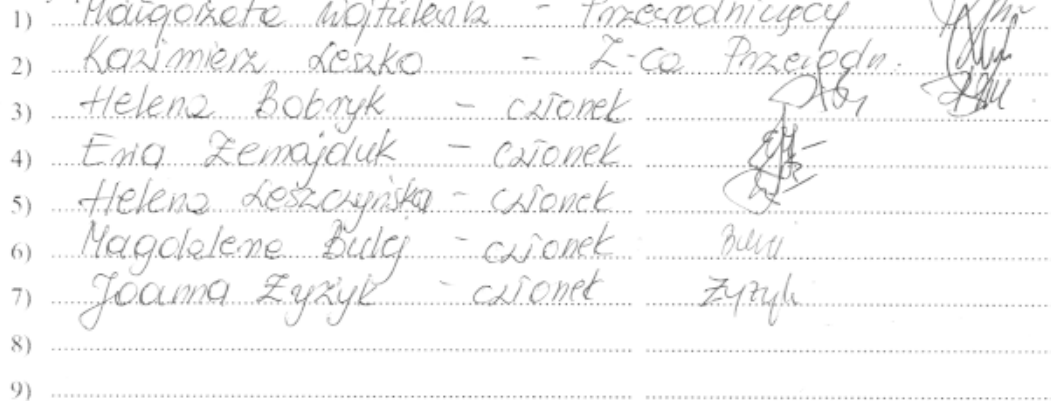 1) Małgorzata Wojtulenia - Przewodniczący
2) Kazimierz Leszko - Z-ca Przewodn.
3) Helena Bobryk - członek
4) Ewa Żemajduk - członek
5) Helena Leszczyńska - członek
6) Magdalena Bulej - członek
7) Joanna Zyzyk - członek Zyzyk
8)
9)